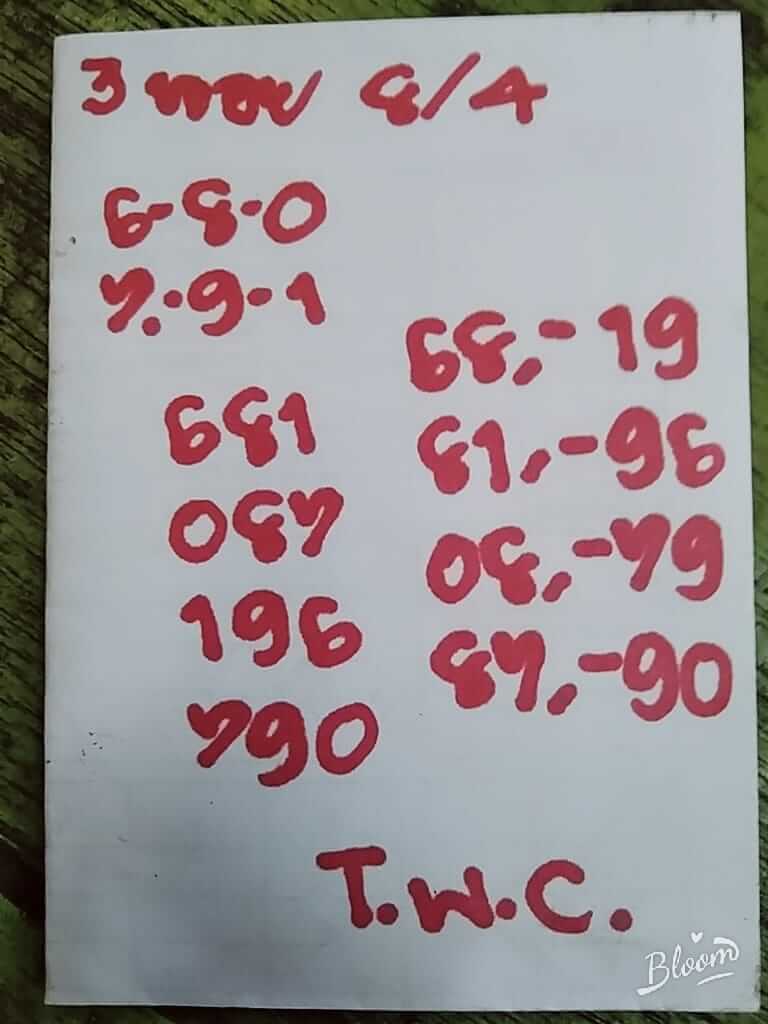 3 หอย 8/4
6-8-0
7.-9-1
681
087
196
790
68,-19
81,-96
08,-79
87,-90
T.W.C.
Bloom